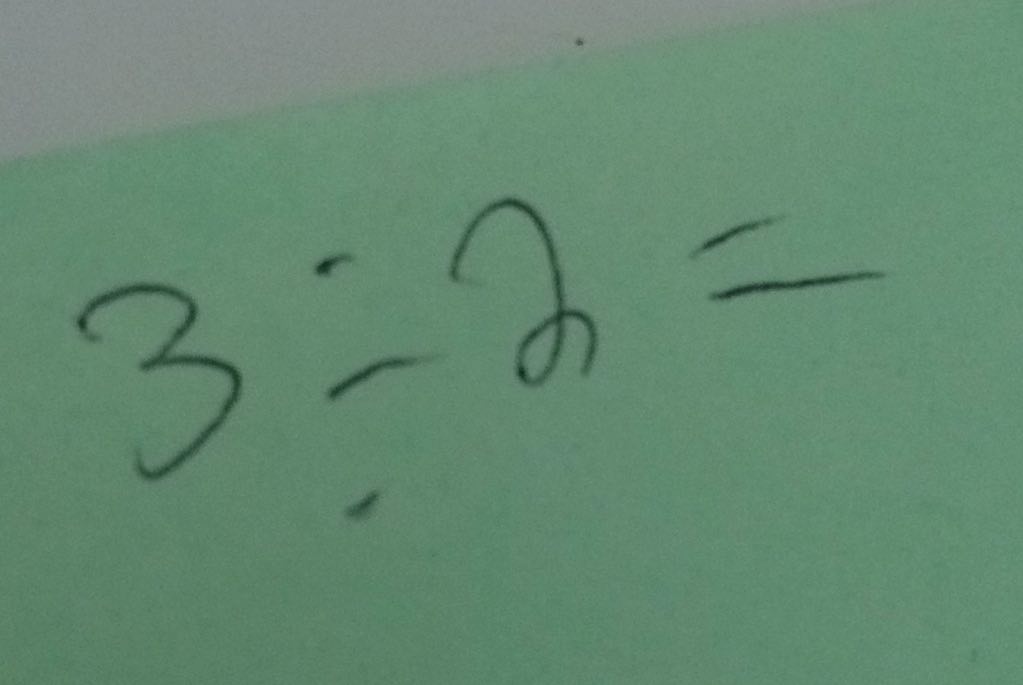 3 ÷ 2 =